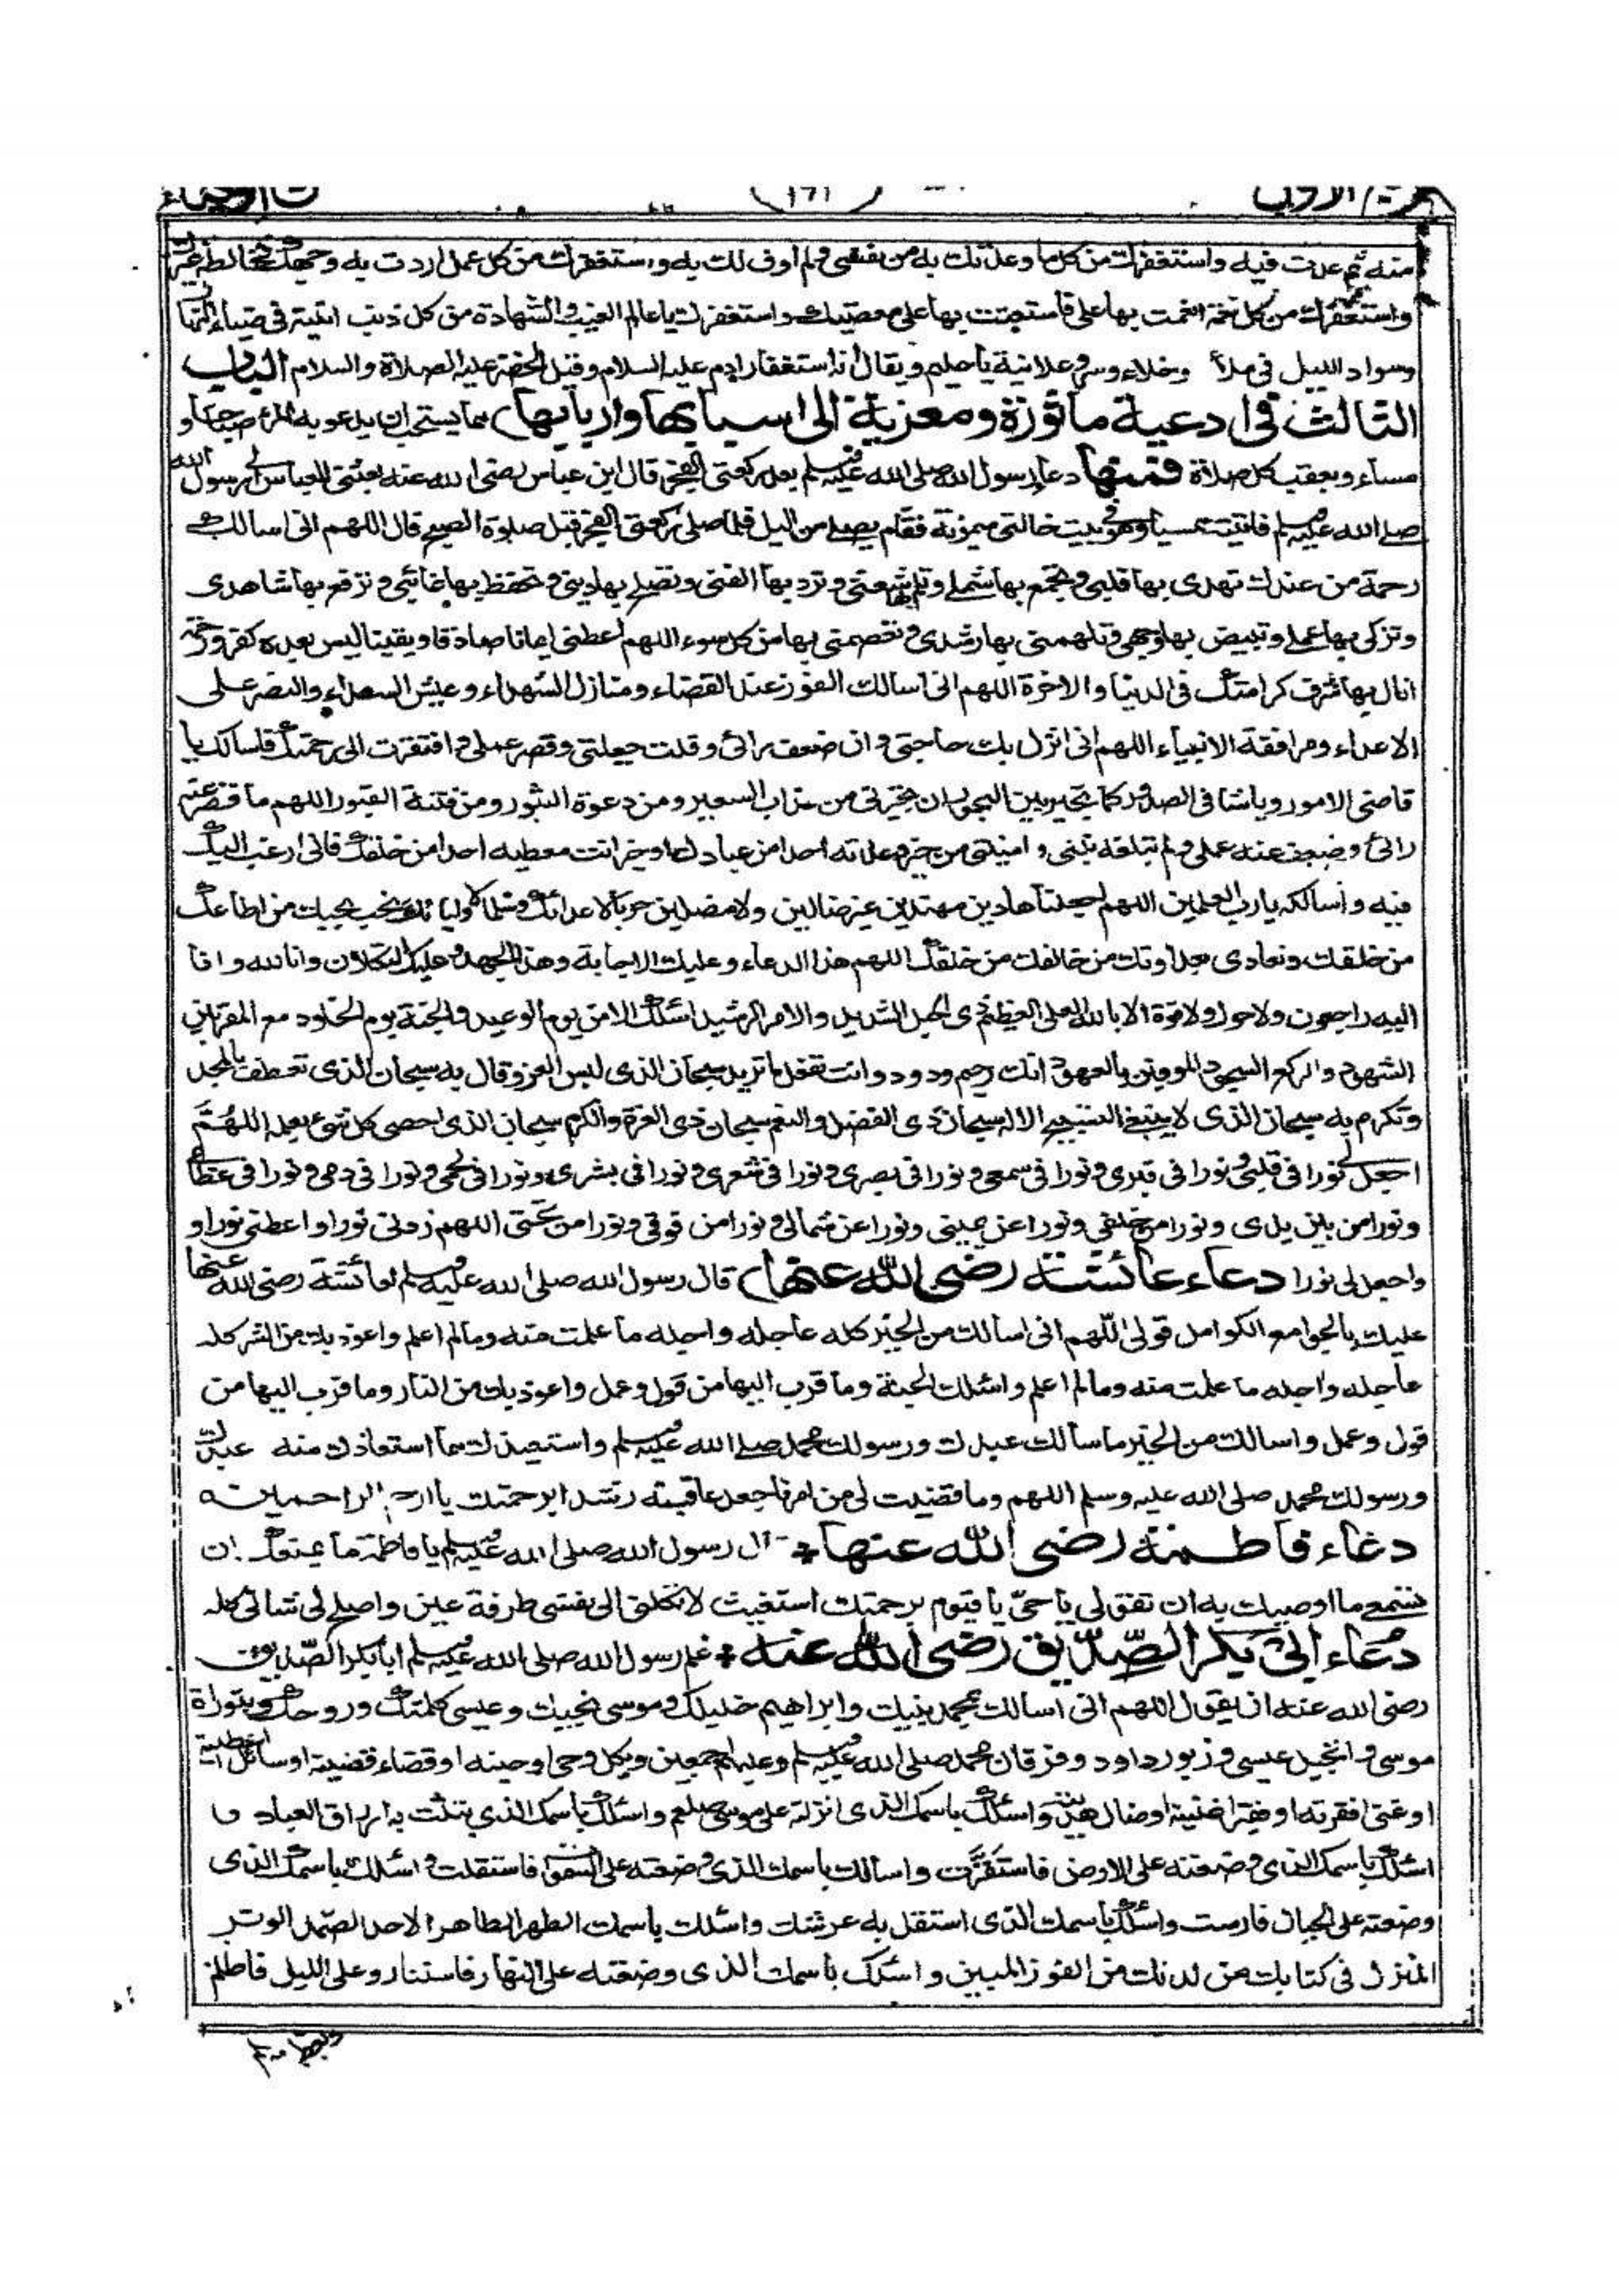 (171)
منه ثم عدت فيه واستغفرك من كل ما وعدتك به من نفسي ولم اوف لك به واستغفرك من كل عمل اردت به وجهك فخالطه غيرك
واستغفرك من كل نعمة انعمت بها على فاستعنت بها على معصيتك واستغفرك يا عالم الغيب والشهادة من كل ذنب اتيته في ضياء النهار
وسواد الليل في ملأ وخلاء وسر وعلانية يا حليم ويقال انه استغفار ادم عليه السلام وقيل الخضر عليه الصلاة والسلام الباب
الثالث في ادعية ماثورة ومعزية الى اسبابها واربابها) مما يستحب ان يدعو به المرء صباحا و
مساء وبعقب كل صلاة فمنها دعاء رسول الله صلى الله عليه وسلم بعد ركعتي الفجر قال ابن عباس رضى الله عنه بعثني العباس الى رسول الله
صلى الله عليه وسلم فاتيته ممسيا وهو في بيت خالتي ميمونة فقام يصلي من اليل فلما صلى ركعتي الفجر قبل صلوة الصبح قال اللهم انى اسالك
رحمة من عندك تهدى بها قلبي وتجمع بها شملي وتلم بها شعثي وترد بها الفتى وتصلح بها ديني وتحفظ بها غائبي وترفع بها شاهدى
وتزكى بها عملي وتبيض بها وجهي وتلهمني بها رشدى وتعصمني بها من كل سوء اللهم اعطني ايمانا صادقا ويقينا ليس بعده كفر ورحمة
انال بها شرف كرامتك في الدنيا والاخرة اللهم انى اسالك الفوز عند القضاء ومنازل الشهداء وعيش السعداء والنصر على
الاعداء ومرافقة الانبياء اللهم انى انزل بك حاجتي وان ضعف رائ وقلت حيلتي وقصر عملي وافتقرت الى رحمتك فاسالك يا
قاضى الامور ويا شافى الصدور كما تجير بين البحور ان تجيرني من عذاب السعير ومن دعوة الثبور ومن فتنة القبور اللهم ما قصر عنه
رائ وضعف عنه عملي ولم تبلغه نيتي وامنيتي من خير وعدته احدا من عبادك او خير انت معطيه احدا من خلقك فانى ارغب اليك
فيه واسالكه يا رب العلمين اللهم اجعلنا هادين مهتدين غير ضالين ولا مضلين حربا لاعدائك وسلما لاوليائك نحب بحبك من اطاعك
من خلقك ونعادى بعداوتك من خالفك من خلقك اللهم هذا الدعاء وعليك الاجابة وهذا الجهد وعليك التكلان وانا لله وانا
اليه راجعون ولا حول ولا قوة الا بالله العلى العظيم ذى الحبل الشديد والامر الرشيد اسئلك الامن يوم الوعيد والجنة يوم الخلود مع المقربين
الشهود والركع السجود الموفين بالعهود انك رحيم ودود وانت تفعل ما تريد سبحان الذى لبس العز وقال به سبحان الذى تعطف بالمجد
وتكرم به سبحان الذى لا ينبغي التسبيح الا له سبحان ذى الفضل والنعم سبحان ذى العزة والكرم سبحان الذى احصى كل شئ بعلمه اللهم
اجعل لي نورا في قلبي ونورا في قبرى ونورا في سمعى ونورا في بصرى ونورا في شعرى ونورا في بشرى ونورا في لحمى ونورا في دمى ونورا في عظامى
ونورا من بين يدى ونورا من خلفى ونورا عن يميني ونورا عن شمالي ونورا من فوقي ونورا من تحتى اللهم زدنى نورا واعطنى نورا و
واجعل لى نورا دعاء عائشة رضى الله عنها) قال رسول الله صلى الله عليه وسلم لعائشة رضى الله عنها
عليك بالجوامع الكوامل قولى اللهم انى اسالك من الخير كله عاجله واجله ما علمت منه وما لم اعلم واعوذ بك من الشر كله
عاجله واجله ما علمت منه وما لم اعلم واسئلك الجنة وما قرب اليها من قول وعمل واعوذ بك من النار وما قرب اليها من
قول وعمل واسالك من الخير ما سالك عبدك ورسولك محمد صلى الله عليه وسلم واستعيذك مما استعاذك منه عبدك
ورسولك محمد صلى الله عليه وسلم اللهم وما قضيت لى من امر فاجعل عاقبته رشدا برحمتك يا ارحم الراحمين
دعاء فاطمة رضى الله عنها * قال رسول الله صلى الله عليه وسلم يا فاطمة ما يمنعك ان
تسمعى ما اوصيك به ان تقولى يا حي يا قيوم برحمتك استغيث لا تكلنى الى نفسى طرفة عين واصلح لى شانى كله
دعاء ابى بكر الصديق رضى الله عنه * علم رسول الله صلى الله عليه وسلم ابا بكر الصديق
رضى الله عنه ان يقول اللهم انى اسالك بمحمد نبيك وابراهيم خليلك وموسى نجيك وعيسى كلمتك وروحك وبتوراة
موسى وانجيل عيسى وزبور داود وفرقان محمد صلى الله عليه وسلم وعليهم اجمعين وبكل وحى اوحيته او قضاء قضيته او سائل اعطيته
او غنى افقرته او فقير اغنيته او ضال هديته واسئلك باسمك الذى انزلته على موسى صلعم واسئلك باسمك الذى بثثت به ارزاق العباد و
اسئلك باسمك الذى وضعته على الارض فاستقرت واسالك باسمك الذى وضعته على السموات فاستقلت واسئلك باسمك الذى
وضعته على الجبال فارست واسئلك باسمك الذى استقل به عرشك واسئلك باسمك الطهر الطاهر الاحد الصمد الوتر
المنزل في كتابك من لدنك من الفوز المبين واسئلك باسمك الذى وضعته على النهار فاستنار وعلى الليل فاظلم